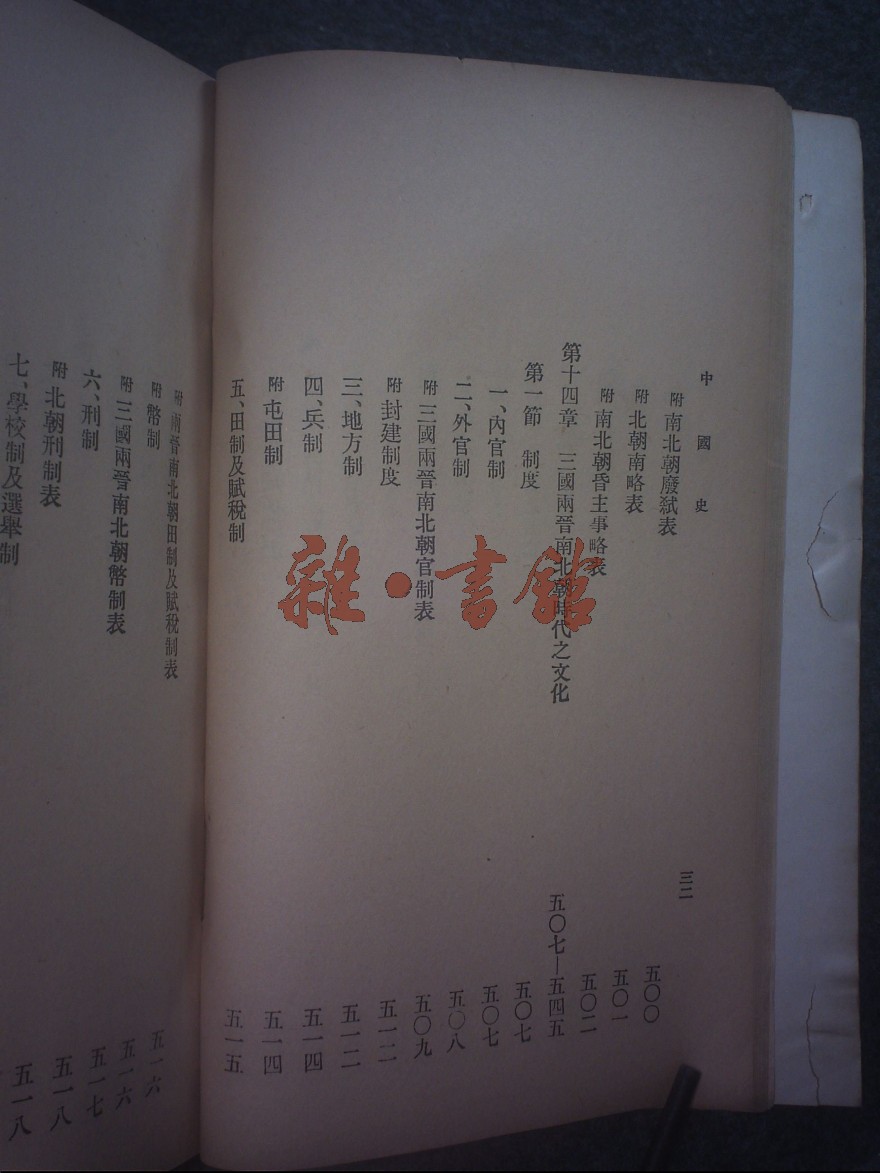 中國史
三二
附 南北朝廢弒表
五〇〇
附 北朝南略表
五〇一
附 南北朝昏主事略表
五〇二
第十四章 三國兩晉南北朝時代之文化
五〇七—五四五
第一節 制度
五〇七
一、內官制
五〇七
二、外官制
五〇八
附 三國兩晉南北朝官制表
五〇九
附 封建制度
五一二
三、地方制
五一二
四、兵制
五一四
附 屯田制
五一四
五、田制及賦稅制
五一五
附 兩晉南北朝田制及賦稅制表
五一六
附 幣制
五一六
附 三國兩晉南北朝幣制表
五一七
六、刑制
五一八
附 北朝刑制表
五一八
七、學校制及選舉制
雜·書館